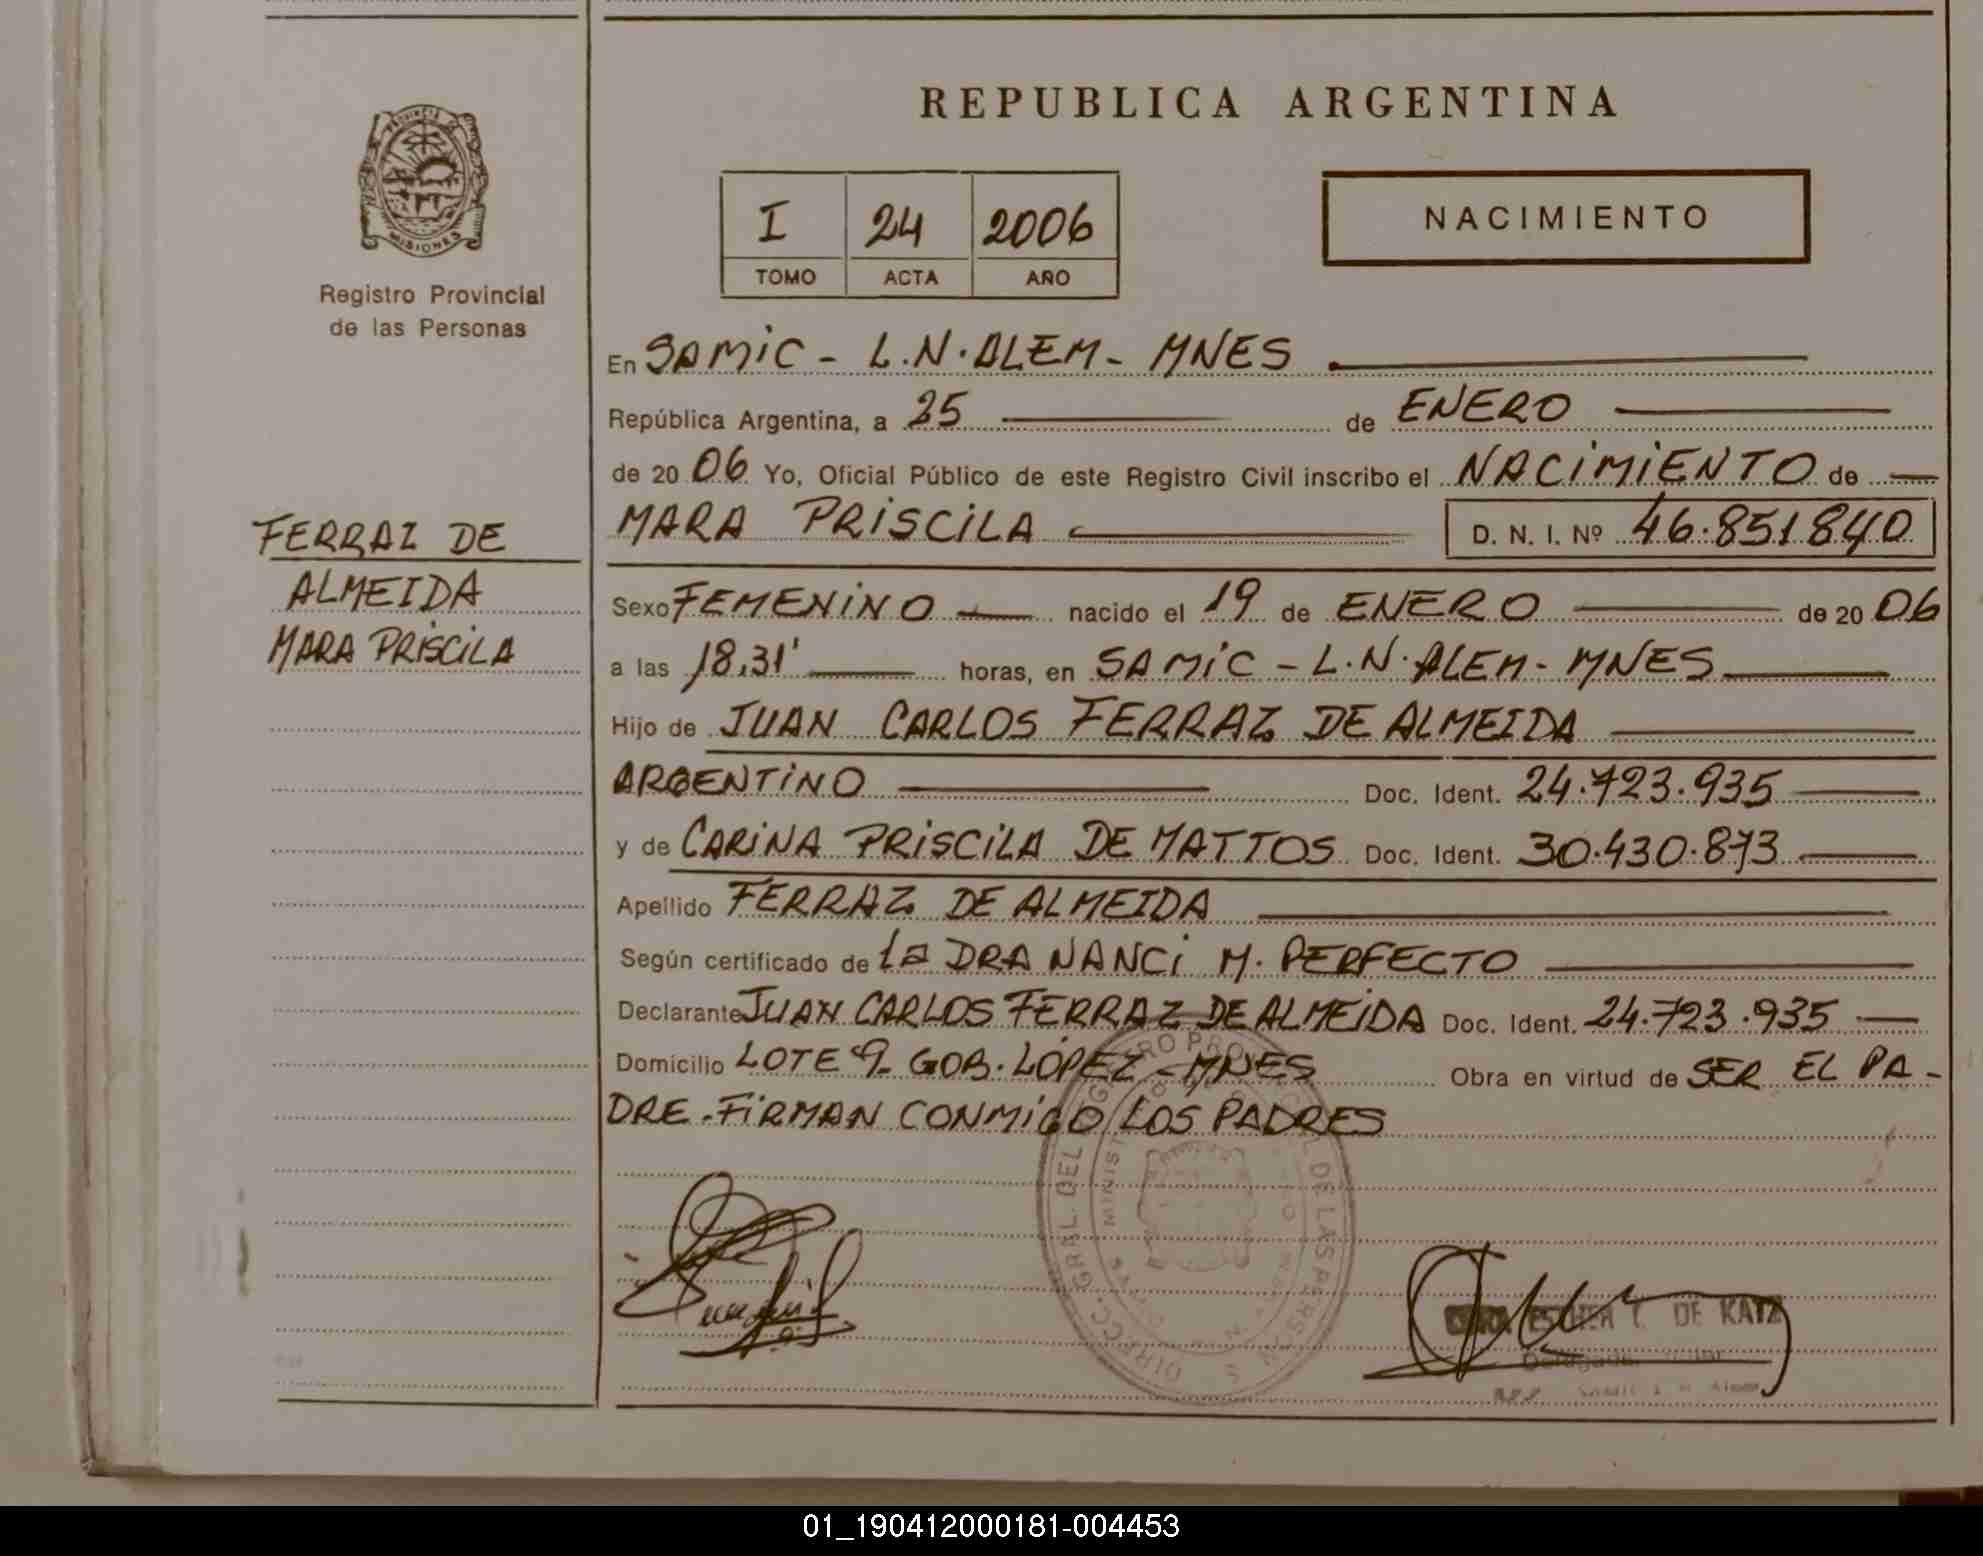 REPUBLICA ARGENTINA
PROVINCIA DE
MISIONES
Registro Provincial
de las Personas
I 24 2006
TOMO ACTA AÑO
NACIMIENTO
En SAMIC - L.N. ALEM - MNES
República Argentina, a 25 de ENERO
de 20 06 Yo, Oficial Público de este Registro Civil inscribo el NACIMIENTO de
MARA PRISCILA D. N. I. Nº 46.851840
FERRAZ DE
ALMEIDA
MARA PRISCILA
Sexo FEMENINO nacido el 19 de ENERO de 20 06
a las 18,31' horas, en SAMIC - L.N. ALEM - MNES
Hijo de JUAN CARLOS FERRAZ DE ALMEIDA
ARGENTINO Doc. Ident. 24.723.935
y de CARINA PRISCILA DE MATTOS Doc. Ident. 30.430.873
Apellido FERRAZ DE ALMEIDA
Según certificado de la DRA NANCI M. PERFECTO
Declarante JUAN CARLOS FERRAZ DE ALMEIDA Doc. Ident. 24.723.935
Domicilio LOTE 9 - GOB. LÓPEZ - MNES Obra en virtud de SER EL PA-
DRE - FIRMAN CONMIGO LOS PADRES
DIRECC. GRAL. DEL REGISTRO PROVINCIAL DE LAS PERSONAS
ESTHER T. DE KATZ
Delegada Titular
01_190412000181-004453